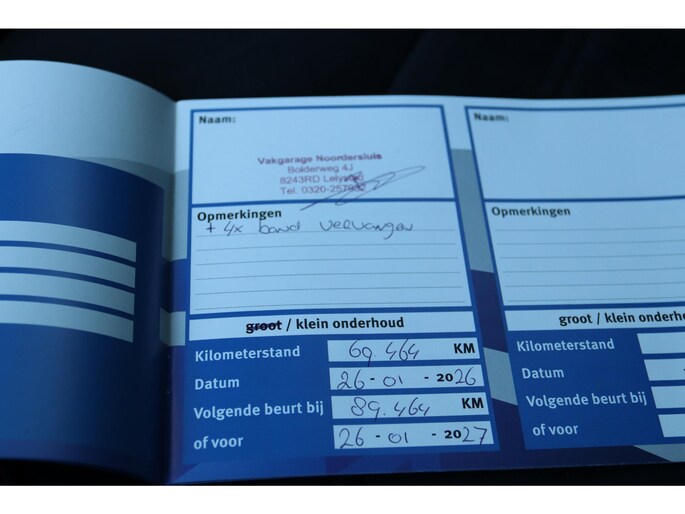 Naam:
Vakgarage Noordersluis
Bolderweg 4J
8243RD Lelystad
Tel. 0320-257932
Opmerkingen
+ 4x band vervangen
groot / klein onderhoud
Kilometerstand 69.464 KM
Datum 26-01-2026
Volgende beurt bij 89.464 KM
of voor 26-01-2027
Naam:
Opmerkingen
groot / klein onderho
Kilometerstand
Datum
Volgende beurt bij
of voor